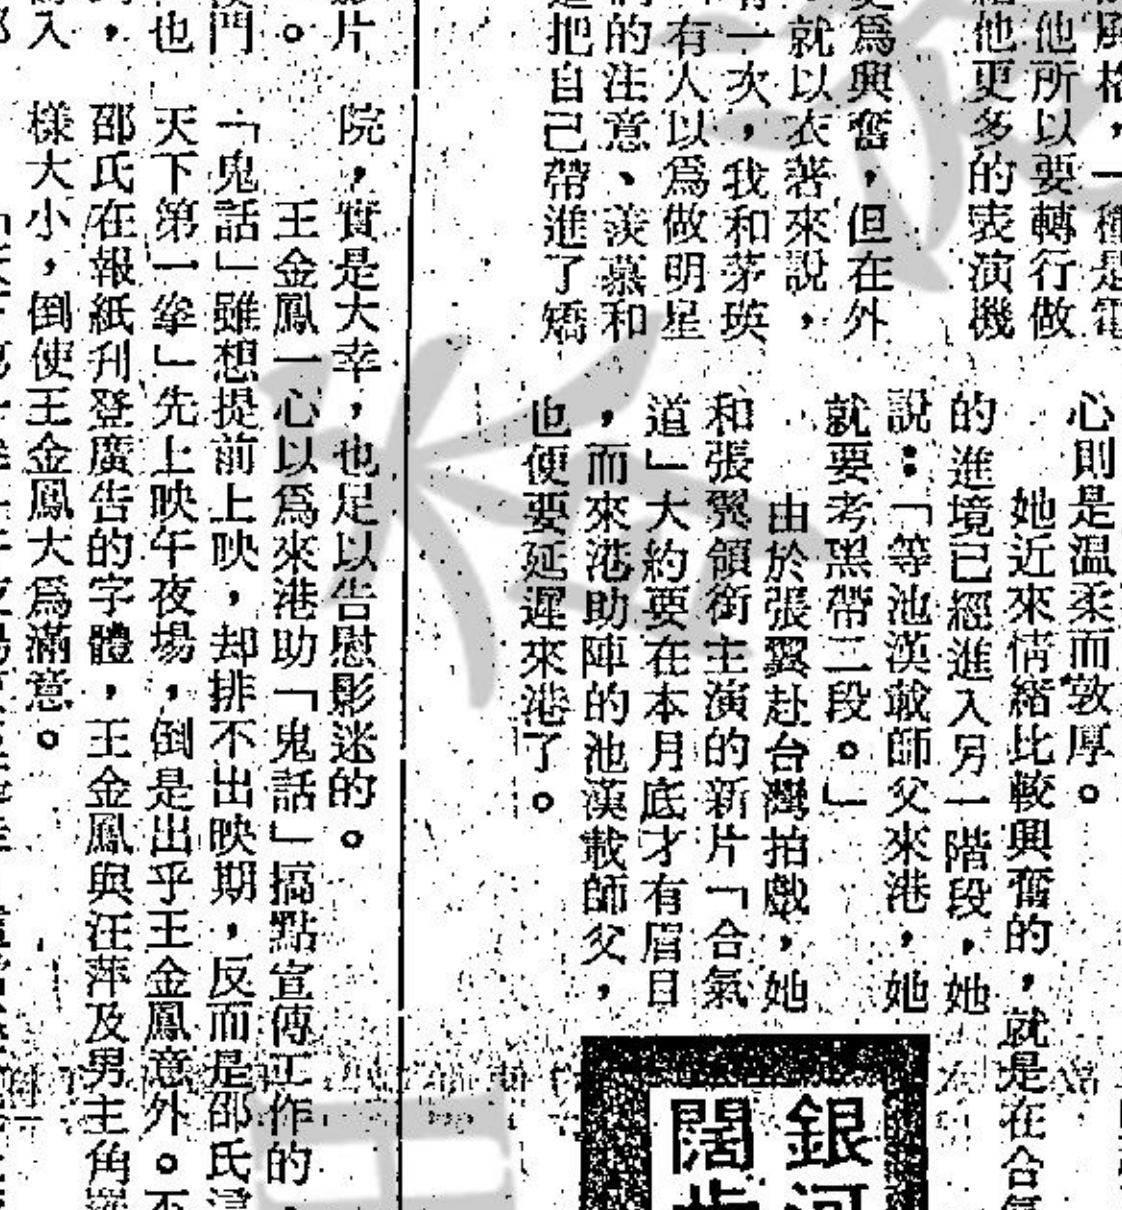 風格，一種是電
他所以要轉行做
給他更多的表演機
更為興奮，但在外
就以衣著來說，
有一次，我和茅瑛
有人以爲做明星
們的注意、羨慕和
把自己帶進了矯
心則是溫柔而敦厚。
她近來情緒比較興奮的，就是在合氣
的進境已經進入另一階段，她
說：「等池漢載師父來港，她
就要考黑帶二段。」
由於張翼赴台灣拍戲，她
和張翼領銜主演的新片「合氣
道」大約要在本月底才有眉目
，而來港助陣的池漢載師父，
也便要延遲來港了。
銀河
闊步
影片
院，實是大幸，也足以告慰影迷的。
王金鳳一心以爲來港助「鬼話」搞點宣傳工作的
「鬼話」雖想提前上映，却排不出映期，反而是邵氏
天下第一拳」先上映午夜場，倒是出乎王金鳳意外。不
邵氏在報紙刋登廣告的字體，王金鳳與汪萍及男主角羅
樣大小，倒使王金鳳大爲滿意。